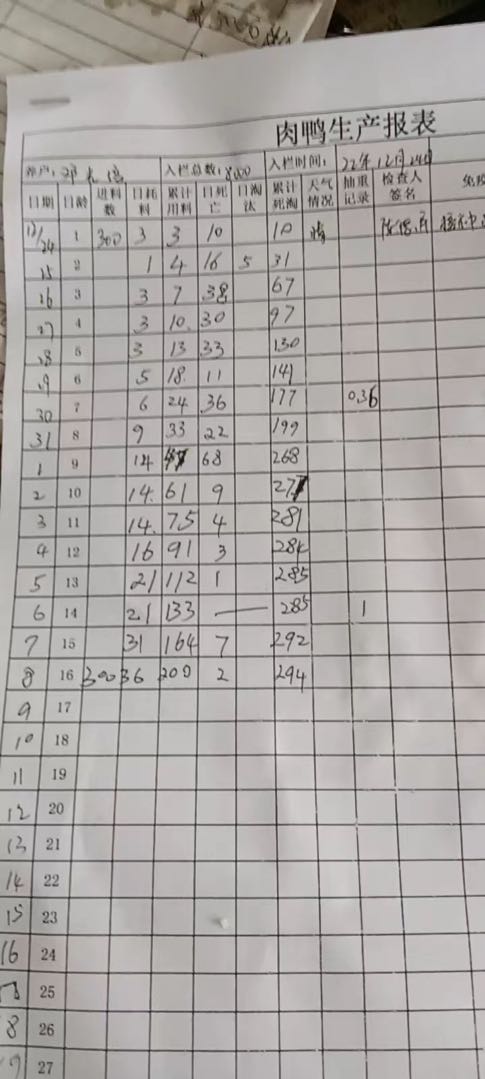 肉鸭生产报表
养户: 邓 入栏总数: 8000 入栏时间: 22年12月24日
日期 日龄 进料数 日耗料 累计用料 日死亡 日淘汰 累计死淘 天气情况 抽重记录 检查人签名 免疫
12/24 1 300 3 3 10 10 晴
25 2 1 4 16 5 31
26 3 3 7 38 67
27 4 3 10 30 97
28 5 3 13 33 130
29 6 5 18 11 141
30 7 6 24 36 177 0.36
31 8 9 33 22 199
1 9 14 47 68 268
2 10 14 61 9 277
3 11 14 75 4 281
4 12 16 91 3 284
5 13 21 112 1 285
6 14 21 133 — 285 1
7 15 31 164 7 292
8 16 300 36 200 2 294
9 17
10 18
11 19
12 20
13 21
14 22
15 23
16 24
17 25
18 26
19 27